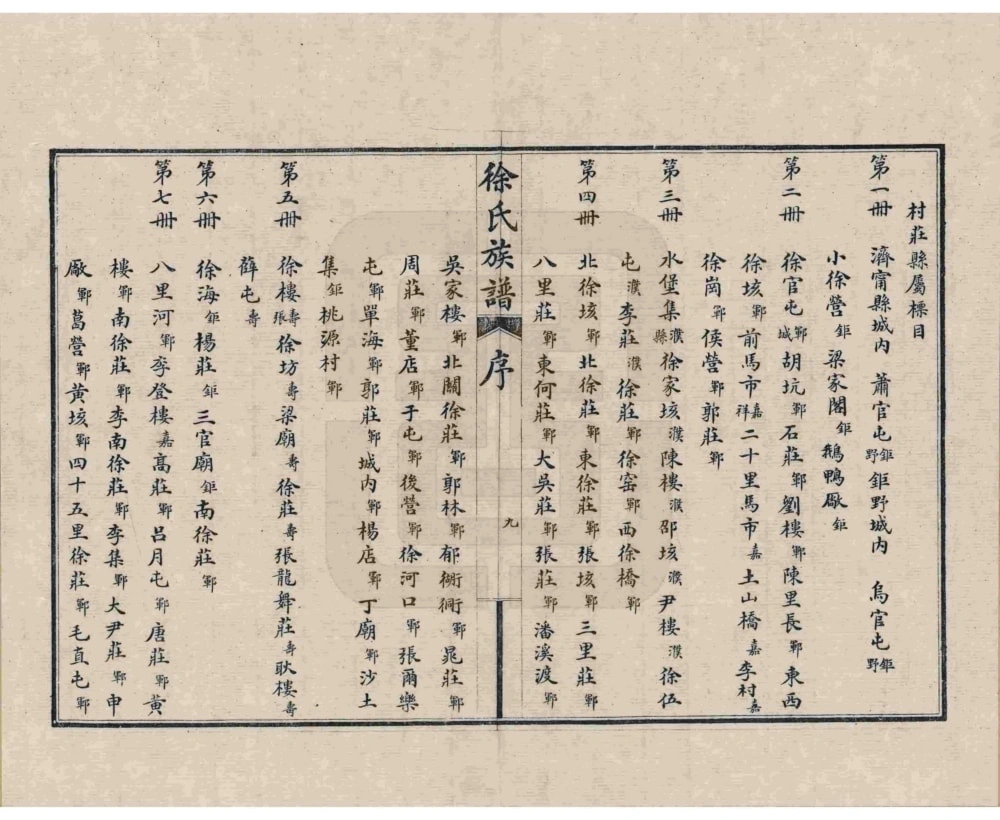 村莊縣屬標目
第一冊　濟甯縣城內　蕭官屯鉅野鉅野城內　烏官屯鉅野
小徐營鉅　梁家閣鉅　鵝鴨廠鉅
第二冊　徐官屯鄆城胡坑鄆石莊鄆劉樓鄆陳里長鄆東西
徐垓鄆前馬市嘉祥二十里馬市嘉土山橋嘉李村嘉
徐崗鄆侯營鄆郭莊鄆
第三冊　水堡集濮縣徐家垓濮陳樓濮邵垓濮尹樓濮徐伍
屯濮李莊濮徐莊鄆徐窑鄆西徐橋鄆
第四冊　北徐垓鄆北徐莊鄆東徐莊鄆張垓鄆三里莊鄆
八里莊鄆東何莊鄆大吳莊鄆張莊鄆潘溪渡鄆
徐氏族譜　序　九
吳家樓鄆北關徐莊鄆郭林鄆郁衚衕鄆晁莊鄆
周莊鄆董店鄆于屯鄆後營鄆徐河口鄆張爾樂
屯鄆單海鄆郭莊鄆城內鄆楊店鄆丁廟鄆沙土
集鉅桃源村鄆
第五冊　徐樓壽張徐坊壽梁廟壽徐莊壽張龍舞莊壽耿樓壽
薛屯壽
第六冊　徐海鉅楊莊鉅三官廟鉅南徐莊鄆
第七冊　八里河鄆李登樓嘉高莊鄆呂月屯鄆唐莊鄆黃
樓鄆南徐莊鄆李南徐莊鄆李集鄆大尹莊鄆申
廠鄆葛營鄆黃垓鄆四十五里徐莊鄆毛直屯鄆